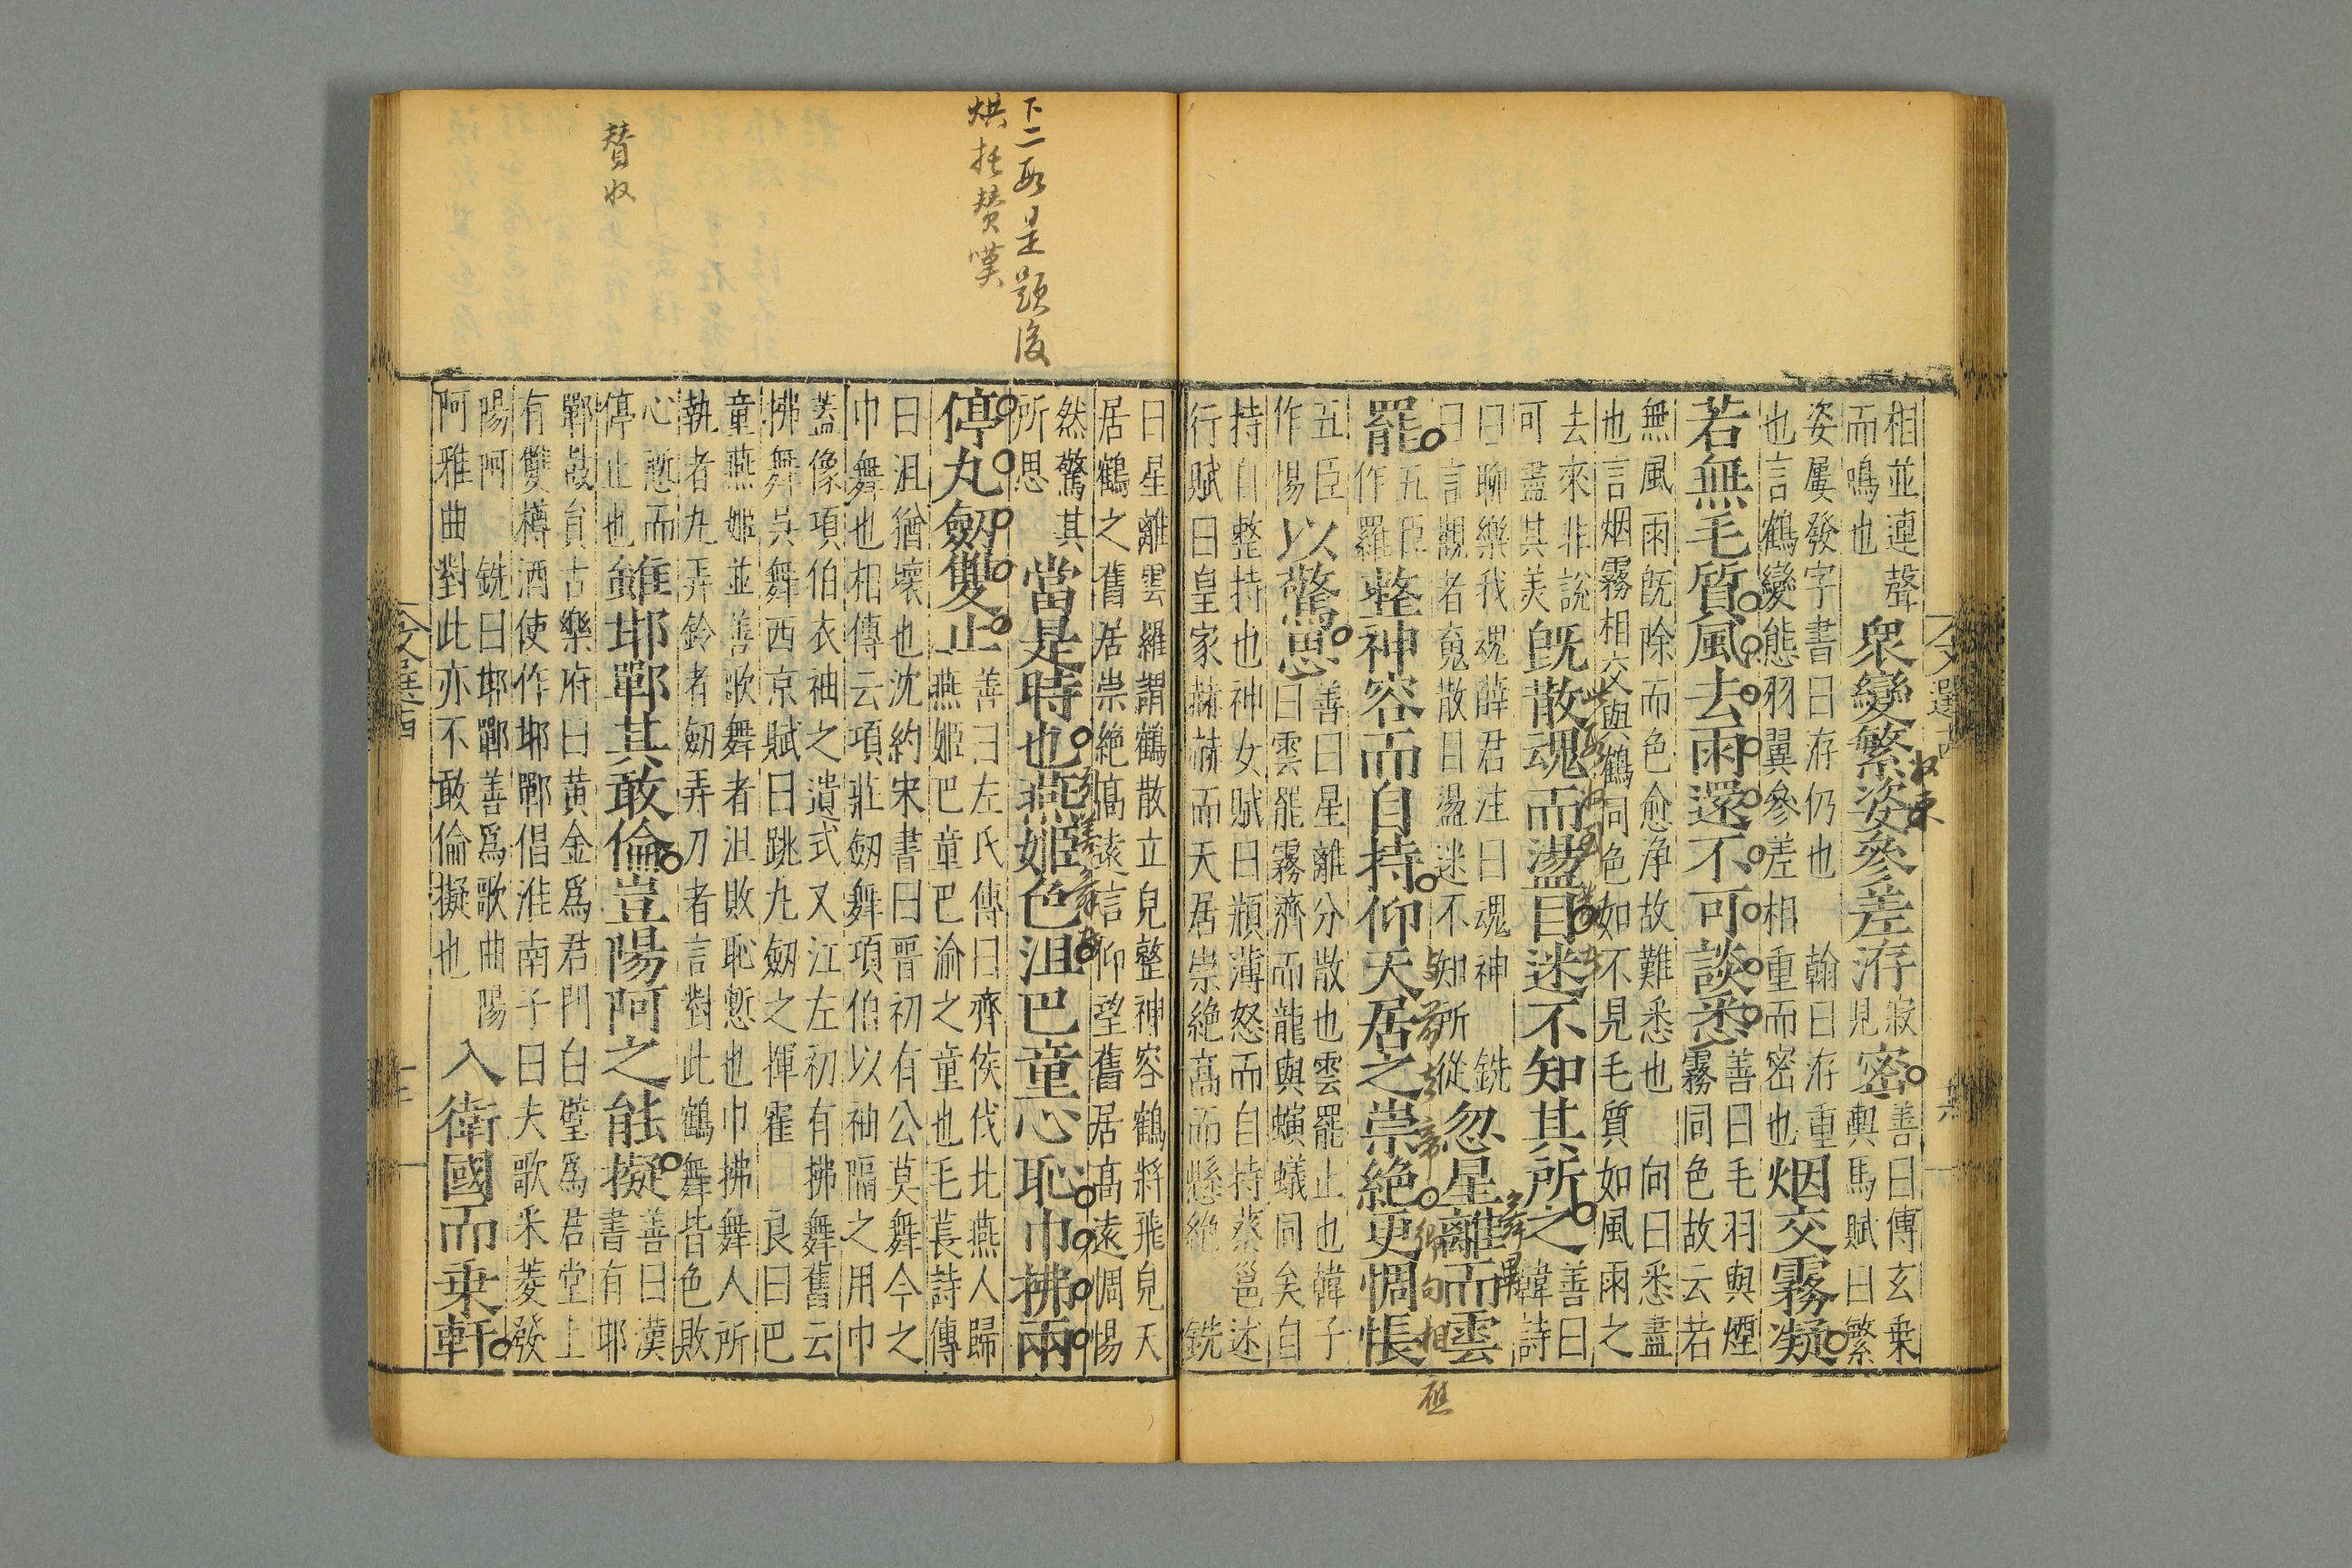 相並連聲
而鳴也
衆變繁姿參差洊
寂
見
密
善曰傳玄乗
輿馬賦曰繁
姿屢發字書曰存仍也
也言鶴變態羽翼參差相
翰曰洊重
重而密也
烟交霧凝
若無毛質風去雨還不可談悉
善曰毛羽與煙
霧同色故云若
無風雨既除而色愈净故難悉也
也言烟霧相交與鶴同色如不見毛質如風雨之
向曰悉盡
去來非說
可盡其美
既散魂而盪目迷不知其所之
善曰
韓詩
曰聊樂我魂薛君注曰魂神
曰言觀者䰟散日盪迷不知所從
銑
忽星離而雲
罷
五臣
作羅
整神容而自持仰天居之崇絶更惆悵
五臣
作惕
以驚思
善曰星離分散也雲罷止也韓子
曰雲罷霧濟而龍與螾蟻同矣自
持自整持也神女賦曰頩薄怒而自持蔡邕述
行賦曰皇家赫赫而天居崇絶高而懸絶 銑
曰星離雲羅謂鶴散立皃整神容鶴將飛皃天
居鶴之舊居崇絶高遠言仰望舊居高遠惆惕
然驚其
所思
當是時也燕姬色沮巴童心恥巾拂兩
停丸劒雙止
善曰左氏傳曰齊侯伐北燕人歸
燕姬巴童巴渝之童也毛萇詩傳
曰沮猶壞也沈約宋書曰晉初有公莫舞今之
巾舞也相傳云項莊劒舞項伯以袖隔之用巾
蓋像項伯衣袖之遺式又江左初有拂舞舊云
拂舞吳舞西京賦曰跳丸劒之揮霍 良曰巴
童燕姬並善歌舞者沮敗恥慙也巾拂舞人所
執者九弄鈴者劒弄刀者言對此鶴舞皆色敗
心慙而
停止也
雖邯鄲其敢倫豈陽阿之能擬
善曰漢
書有邯
鄲鼓員古樂府曰黄金爲君門白璧爲君堂上
有雙樽酒使作邯鄲倡淮南子曰夫歌采菱發
陽阿 銑曰邯鄲善爲歌曲陽
阿雅曲對此亦不敢倫擬也
入衛國而乗軒
下二段是題後
烘托贊嘆
贊收